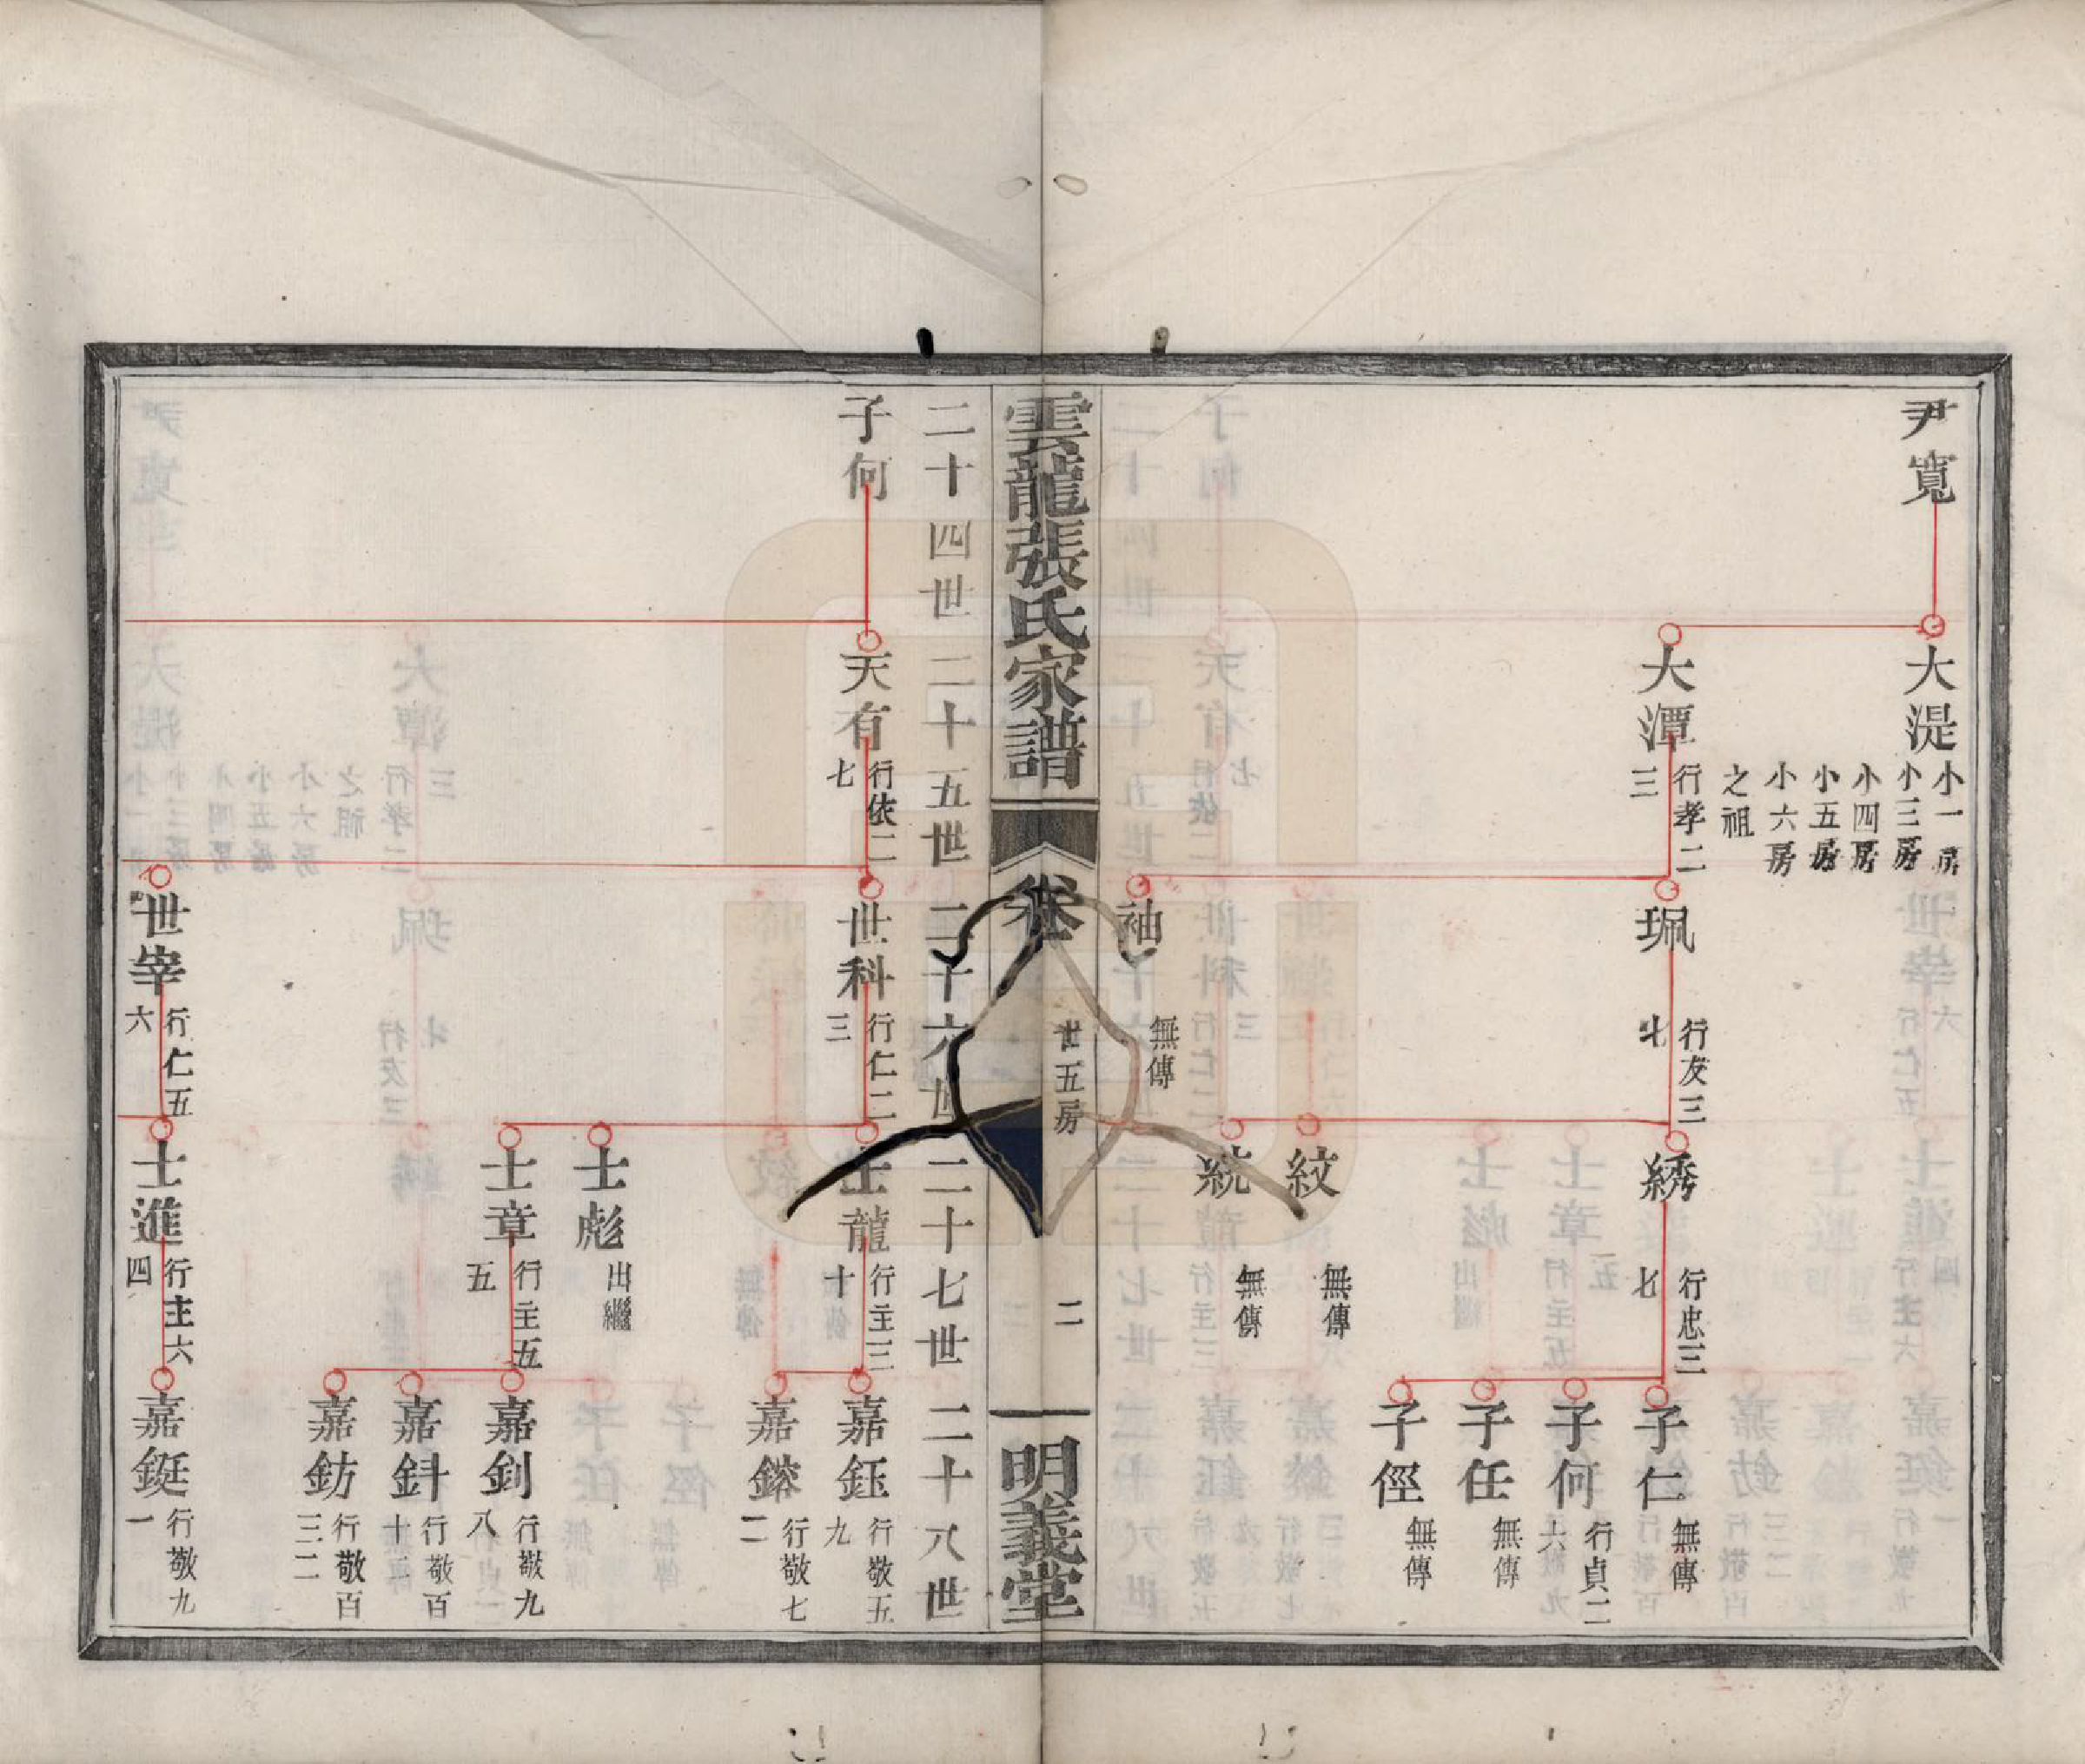 尹寬
大湜
小一房
小三房
小四房
小五房
小六房
之祖
大潭
行孝二
三
珮
行友三
七
袖
無傳
綉
行忠三
七
紋
無傳
統
無傳
子仁
無傳
子何
行貞二
六
子任
無傳
子徑
無傳
雲龍張氏家譜
卷
世五房
二
明義堂
二十四世
二十五世
二十六世
二十七世
二十八世
子何
天有
行依二
七
世科
行仁二
三
世宰
行仁五
六
士龍
行主三
十
士彪
出繼
士章
行主五
五
士進
行主六
四
嘉鈺
行敬五
九
嘉鎔
行敬七
二
嘉釗
行敬九
八
嘉鈄
行敬百
十二
嘉鈁
行敬百
三二
嘉鋌
行敬九
一